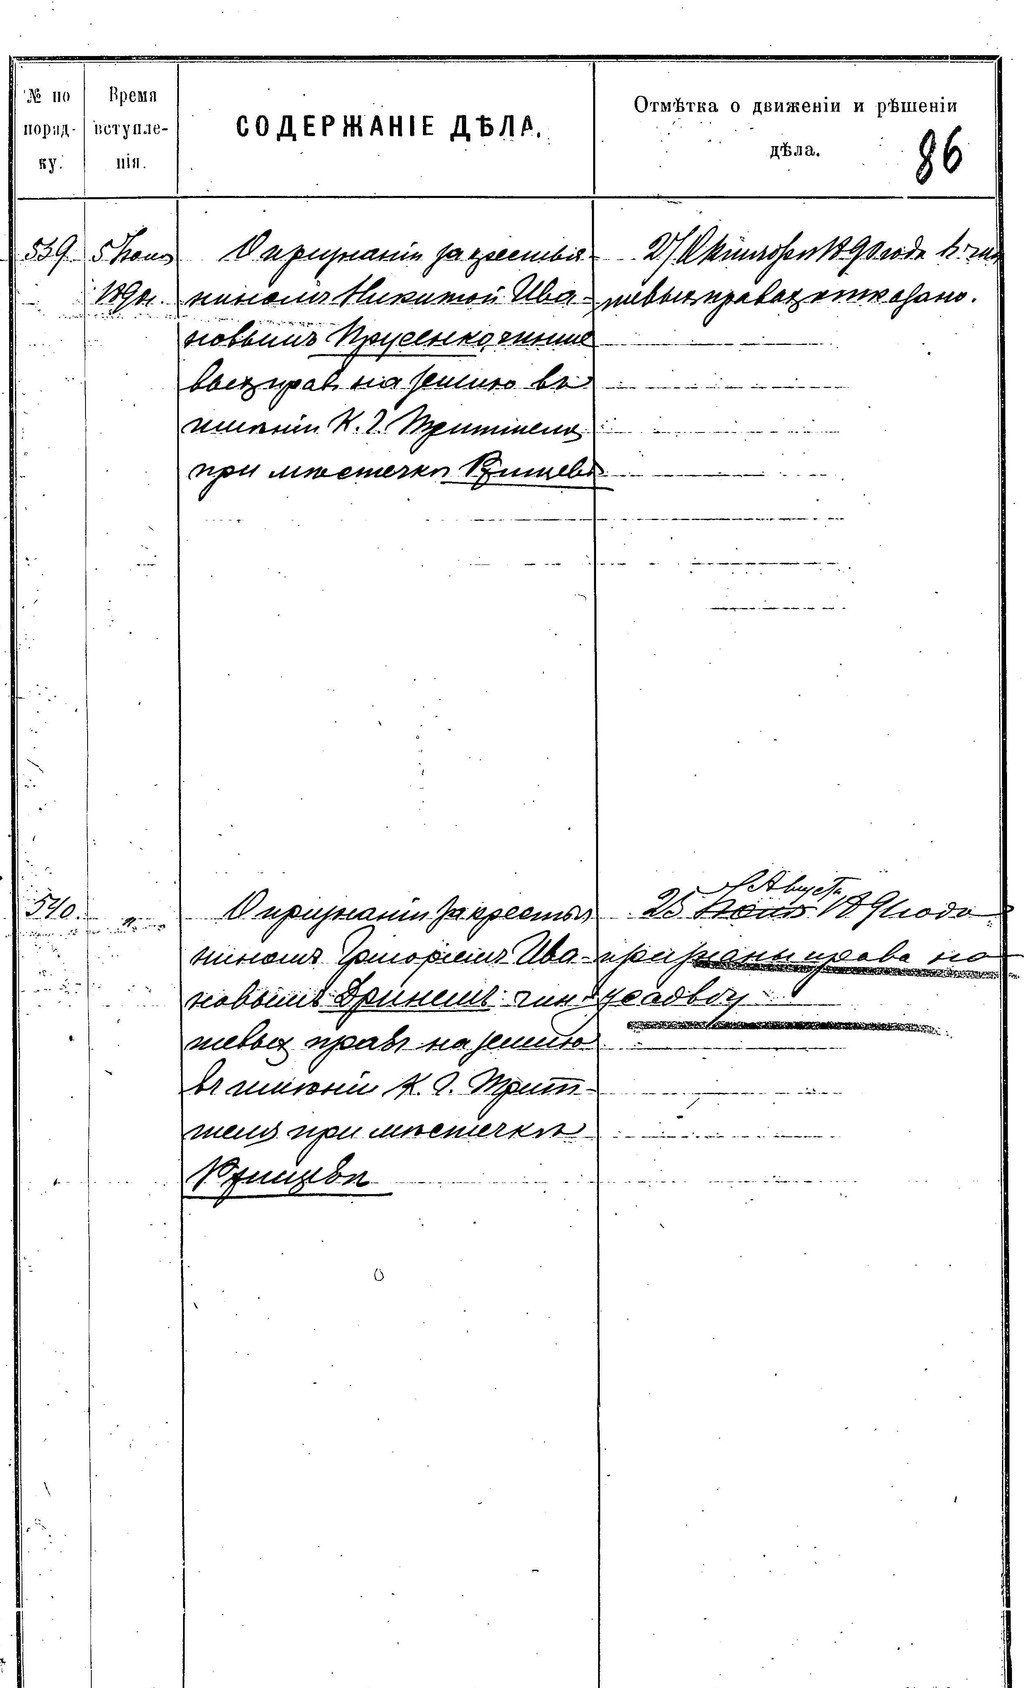 № по поряд- ку.
Время вступле- нія.
СОДЕРЖАНІЕ ДѢЛА.
Отмѣтка о движеніи и рѣшеніи дѣла.
86
539
5 Іюня
О признаніи за крестья-
ниномъ Никитой Ива-
новымъ Прусенко чинше
выхъ правъ на землю въ
имѣніи К. Г.
при мѣстечкѣ
27 Октября 1890 года въ чин
шевыхъ правахъ отказано.
540.
"
О признаніи за крестья
ниномъ Григоріемъ Ива-
новымъ Дринемъ чин-
шевыхъ правъ на землю
въ имѣніи К. Г.
при мѣстечкѣ
Августа
25 Іюня 1891 года
признаны права на
усадьбу